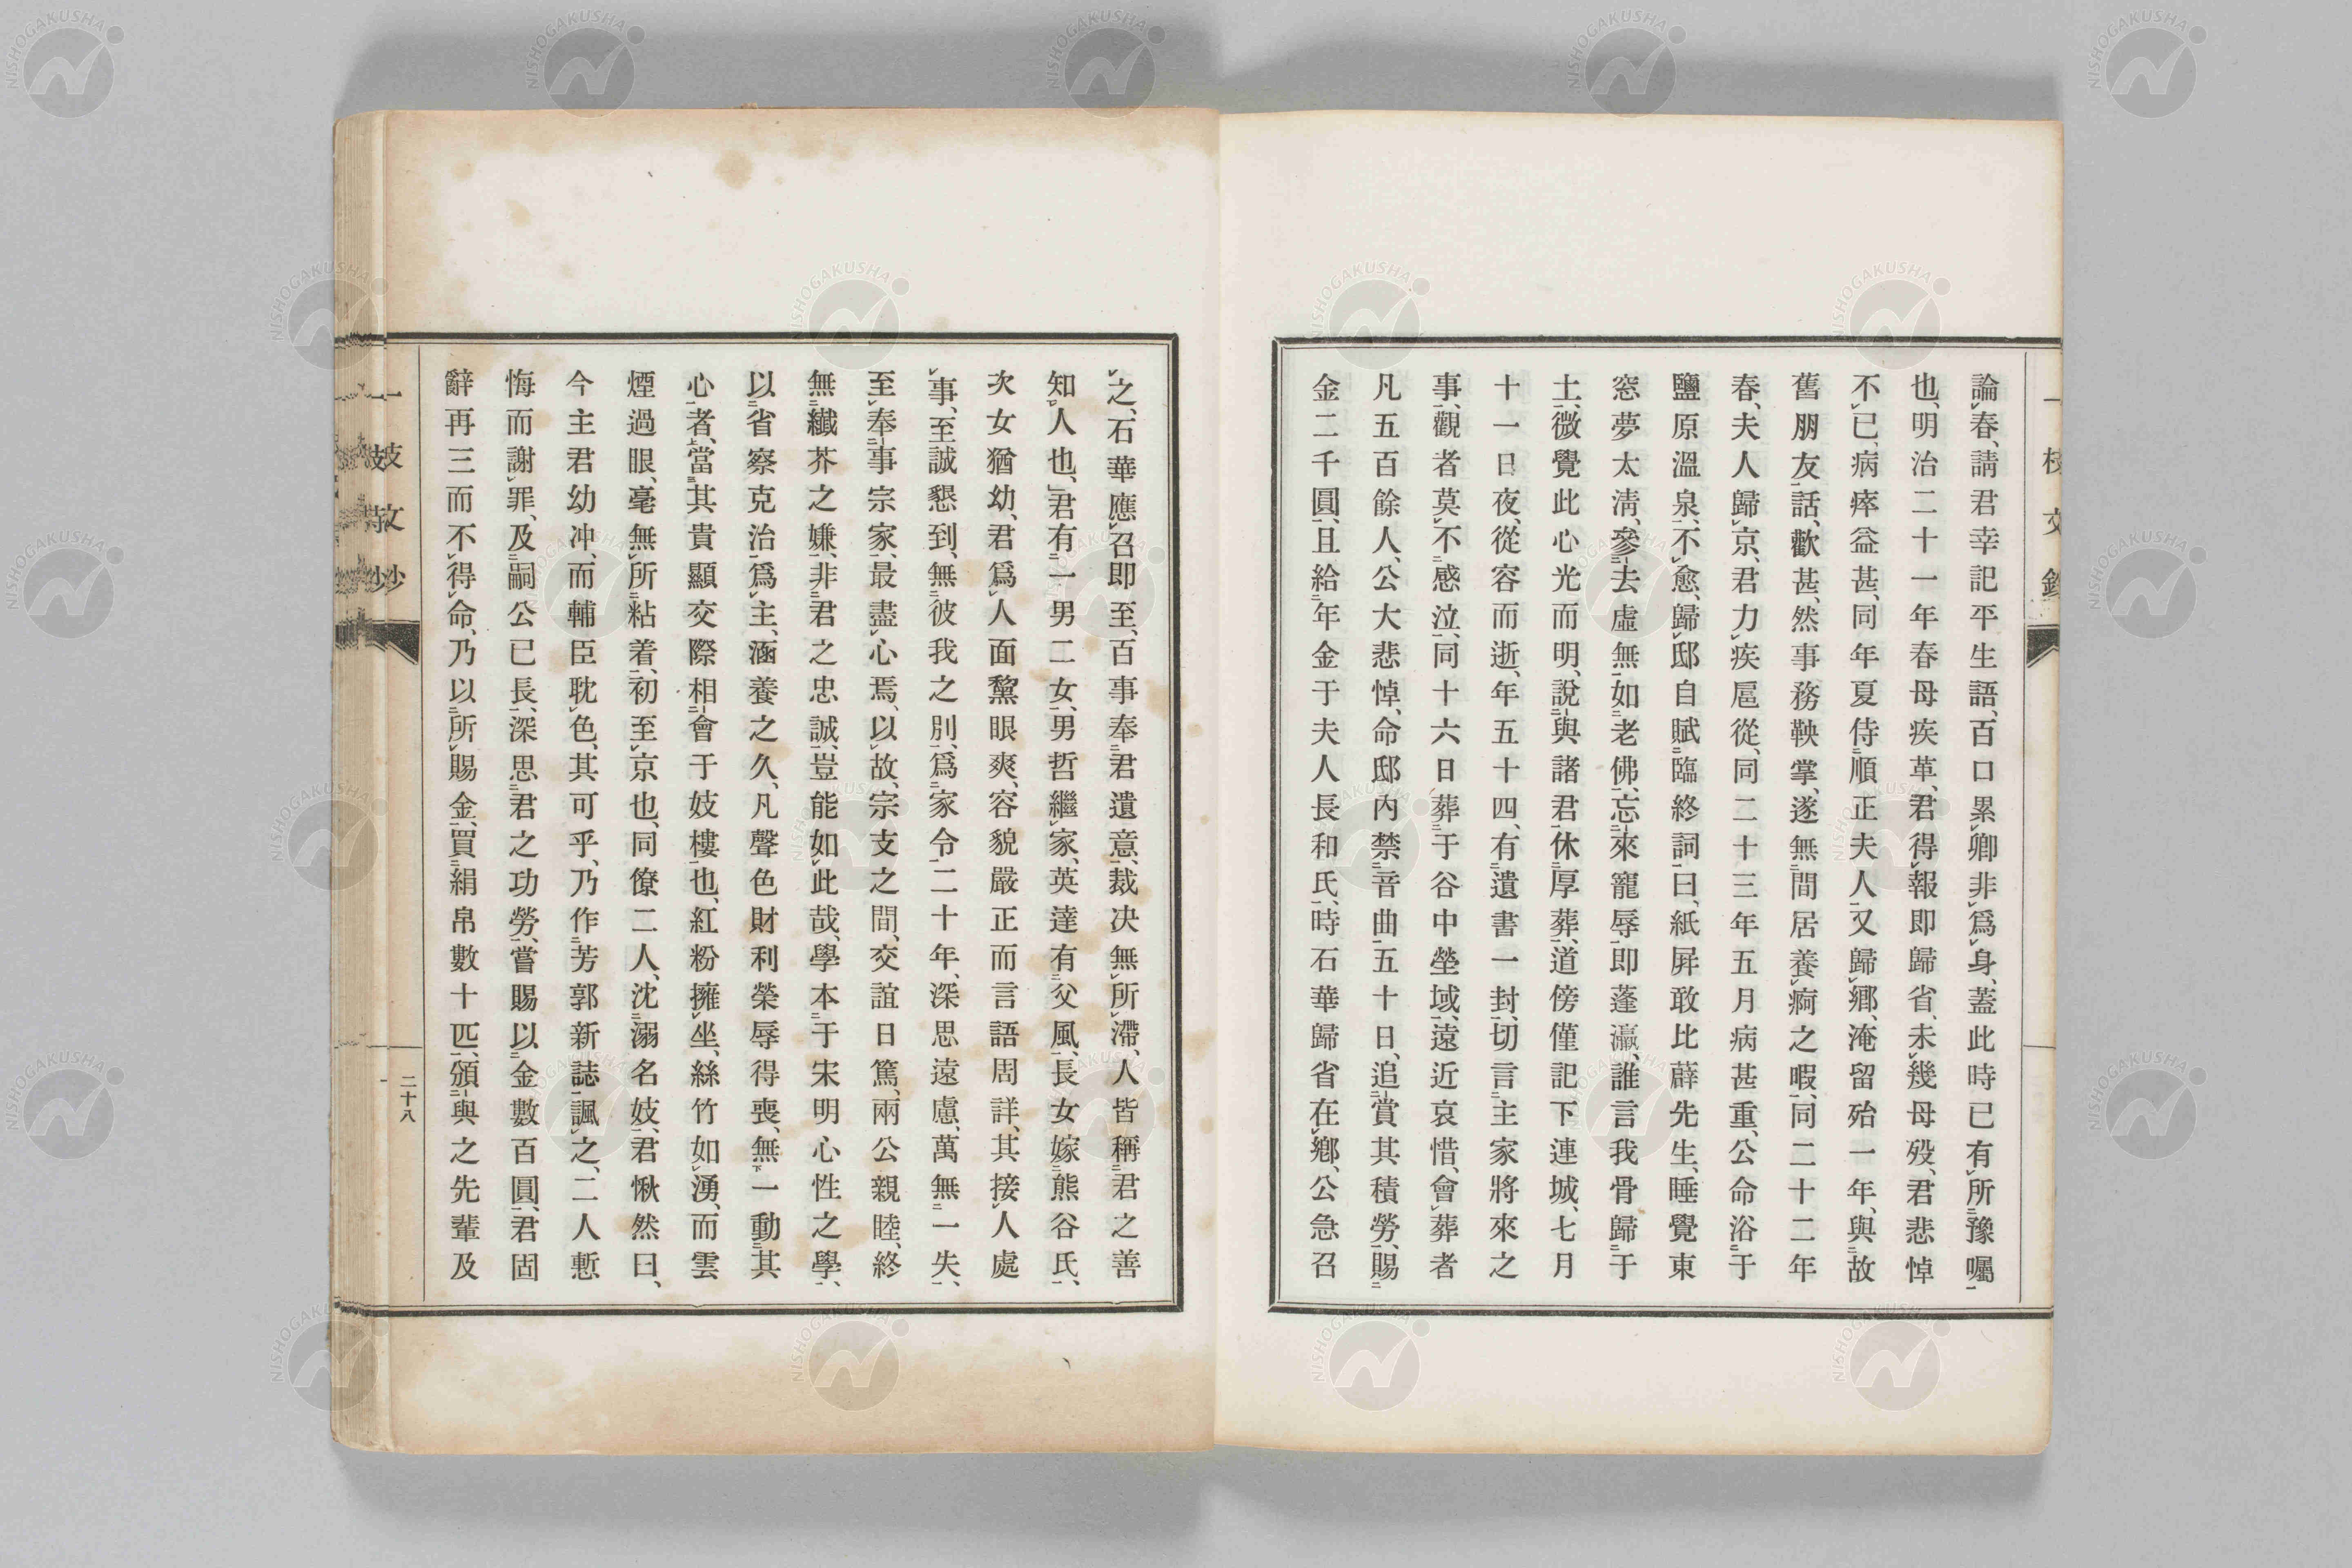 論春、請君幸記平生語、百口累卿非爲身、蓋此時已有所豫囑
也、明治二十一年春母疾革、君得報即歸省、未幾母歿、君悲悼
不已、病瘁益甚、同年夏侍順正夫人又歸鄕、淹留殆一年、與故
舊朋友話、歡甚、然事務鞅掌、遂無間居養痾之暇、同二十二年
春、夫人歸京、君力疾扈從、同二十三年五月病甚重、公命浴于
鹽原溫泉、不愈、歸邸自賦臨終詞曰、紙屛敢比薜先生、睡覺東
窓夢太淸、參去虛無如老佛、忘來寵辱即蓬瀛、誰言我骨歸于
土、微覺此心光而明、說與諸君休厚葬、道傍僅記下連城、七月
十一日夜、從容而逝、年五十四、有遺書一封、切言主家將來之
事、觀者莫不感泣、同十六日葬于谷中塋域、遠近哀惜、會葬者
凡五百餘人、公大悲悼、命邸內禁音曲五十日、追賞其積勞、賜
金二千圓、且給年金于夫人長和氏、時石華歸省在鄕、公急召
之、石華應召即至、百事奉君遺意、裁决無所滯、人皆稱君之善
知人也、君有一男二女、男哲繼家、英達有父風、長女嫁熊谷氏、
次女猶幼、君爲人面黧眼爽、容貌嚴正而言語周詳、其接人處
事、至誠懇到、無彼我之別、爲家令二十年、深思遠慮、萬無一失、
至奉事宗家、最盡心焉、以故、宗支之間、交誼日篤、兩公親睦、終
無纖芥之嫌、非君之忠誠、豈能如此哉、學本于宋明心性之學、
以省察克治爲主、涵養之久、凡聲色財利榮辱得喪、無一動其
心者、當其貴顯交際相會于妓樓也、紅粉擁坐、絲竹如湧、而雲
煙過眼、毫無所粘着、初至京也、同僚二人、沈溺名妓、君愀然曰、
今主君幼冲、而輔臣耽色、其可乎、乃作芳郭新誌諷之、二人慙
悔而謝罪、及嗣公已長、深思君之功勞、嘗賜以金數百圓、君固
辭再三而不得命、乃以所賜金、買絹帛數十匹、頒與之先輩及
二十八